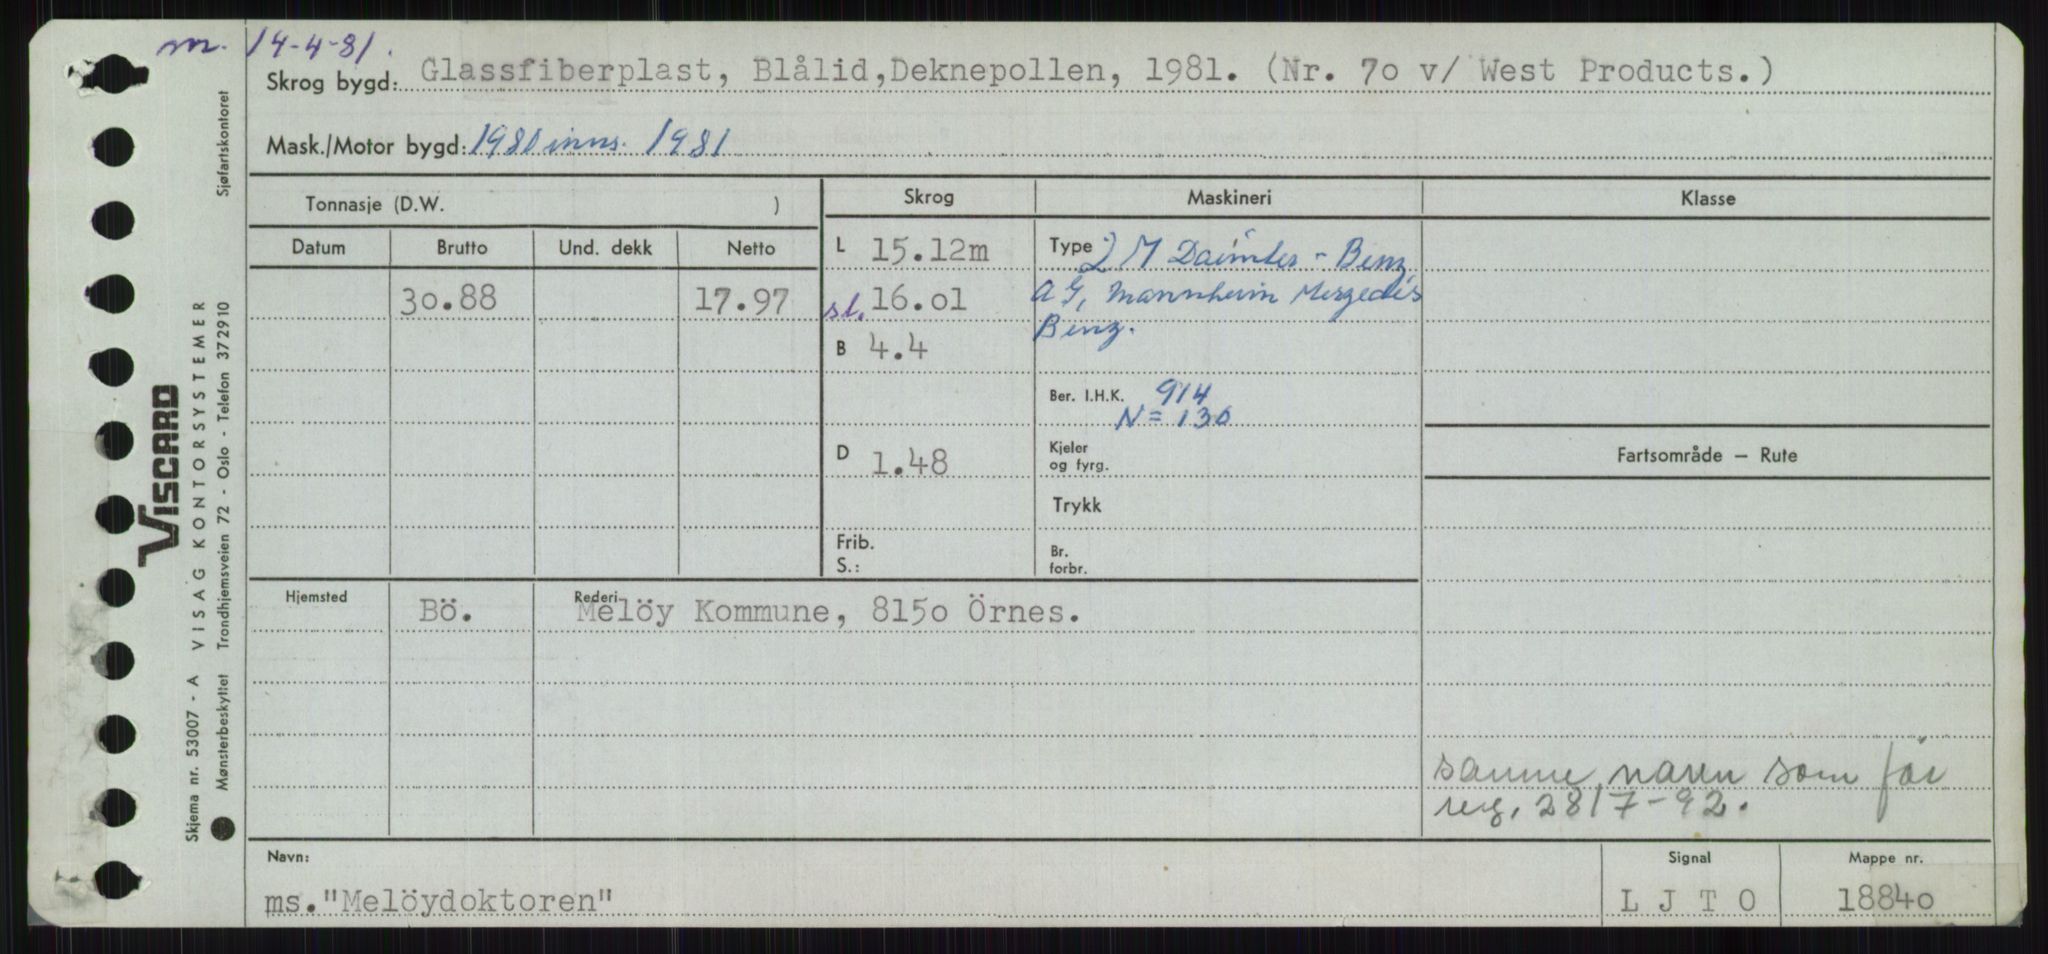 m. 14-4-81.
Skrog bygd: Glassfiberplast, Blålid,Deknepollen, 1981. (Nr. 70 v/ West Products.)
Mask./Motor bygd: 1980 inns. 1981
Tonnasje (D.W. )
Skrog
Maskineri
Klasse
Datum Brutto Und. dekk Netto
30.88 17.97
L 15.12m
sl. 16.01
B 4.4
D 1.48
Frib.
S.:
Type 2) M Daimler - Benz,
AG, Mannheim Mergedes
Benz.
Ber. I.H.K. 914
N = 130
Kjeler
og fyrg.
Trykk
Br.
forbr.
Fartsområde — Rute
Hjemsted Bö.
Rederi Melöy Kommune, 8150 Örnes.
samme navn som for
reg. 2817-92.
Navn:
ms."Melöydoktoren"
Signal
L J T O
Mappe nr.
18840
VISCARD
Skjema nr. 53007 - A VISAG KONTORSYSTEMER
Mønsterbeskyttet Trondhjemsveien 72 - Oslo - Telefon 372910
Sjøfartskontoret